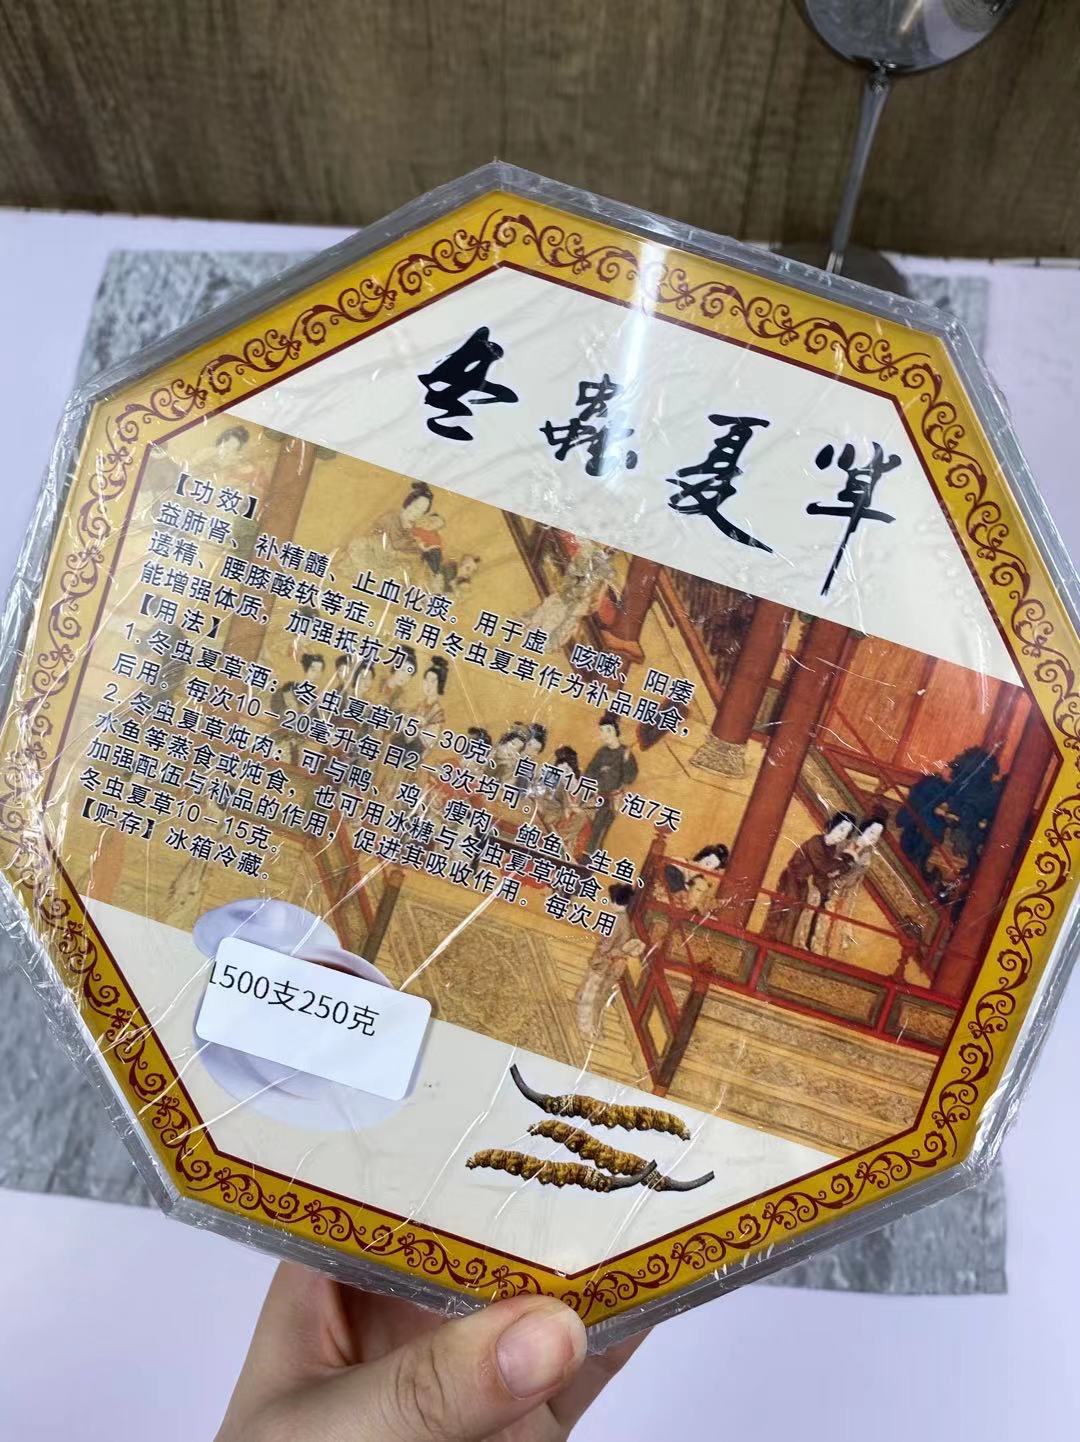 冬蟲夏草
【功效】
益肺肾、补精髓、止血化痰。用于虚 咳嗽、阳痿
遗精、腰膝酸软等症。常用冬虫夏草作为补品服食，
能增强体质，加强抵抗力。
【用法】
1.冬虫夏草酒：冬虫夏草15-30克、白酒1斤，泡7天
后用。每次10-20毫升每日2-3次均可。
2.冬虫夏草炖肉：可与鸭、鸡、瘦肉、鲍鱼、生鱼、
水鱼等蒸食或炖食，也可用冰糖与冬虫夏草炖食。
加强配伍与补品的作用，促进其吸收作用。每次用
冬虫夏草10-15克。
【贮存】冰箱冷藏。
1500支250克